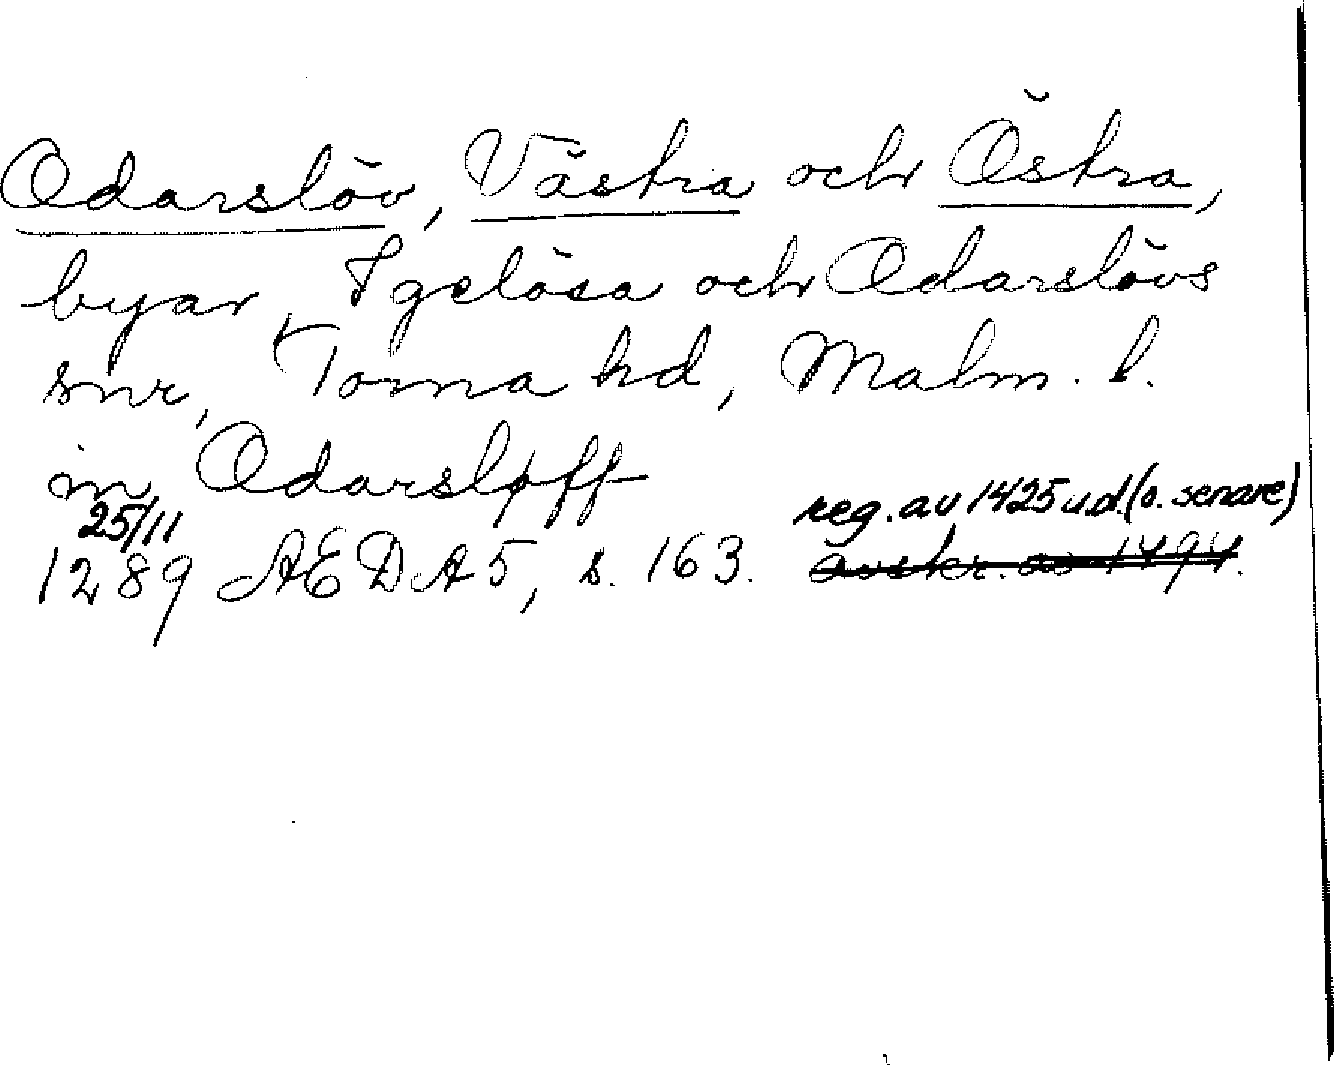 Odarslöv, Västra och Östra,
byar, Igelösa och Odarslövs
snr, Torna hd, Malm. l.
in Odarsløff
25/11
1289 AEDA5, s. 163. reg. av 1425 u.d. (o. senare)
avskr. av 1494.